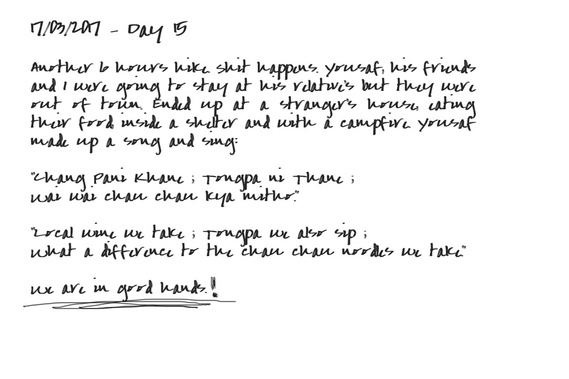 17/03/2017 - Day 15
Another 6 hours hike shit happens. Yousaf, his friends
and I were going to stay at his relative's but they were
out of town. Ended up at a stranger's house, eating
their food inside a shelter and with a campfire Yousaf
made up a song and sing:
"Chang Pani Khane ; Tongpa ni Thane ;
Wai Wai chau chau kya mitho."
"Local wine we take ; Tongpa we also sip ;
What a difference to the chau chau noodles we take"
We are in good hands.!